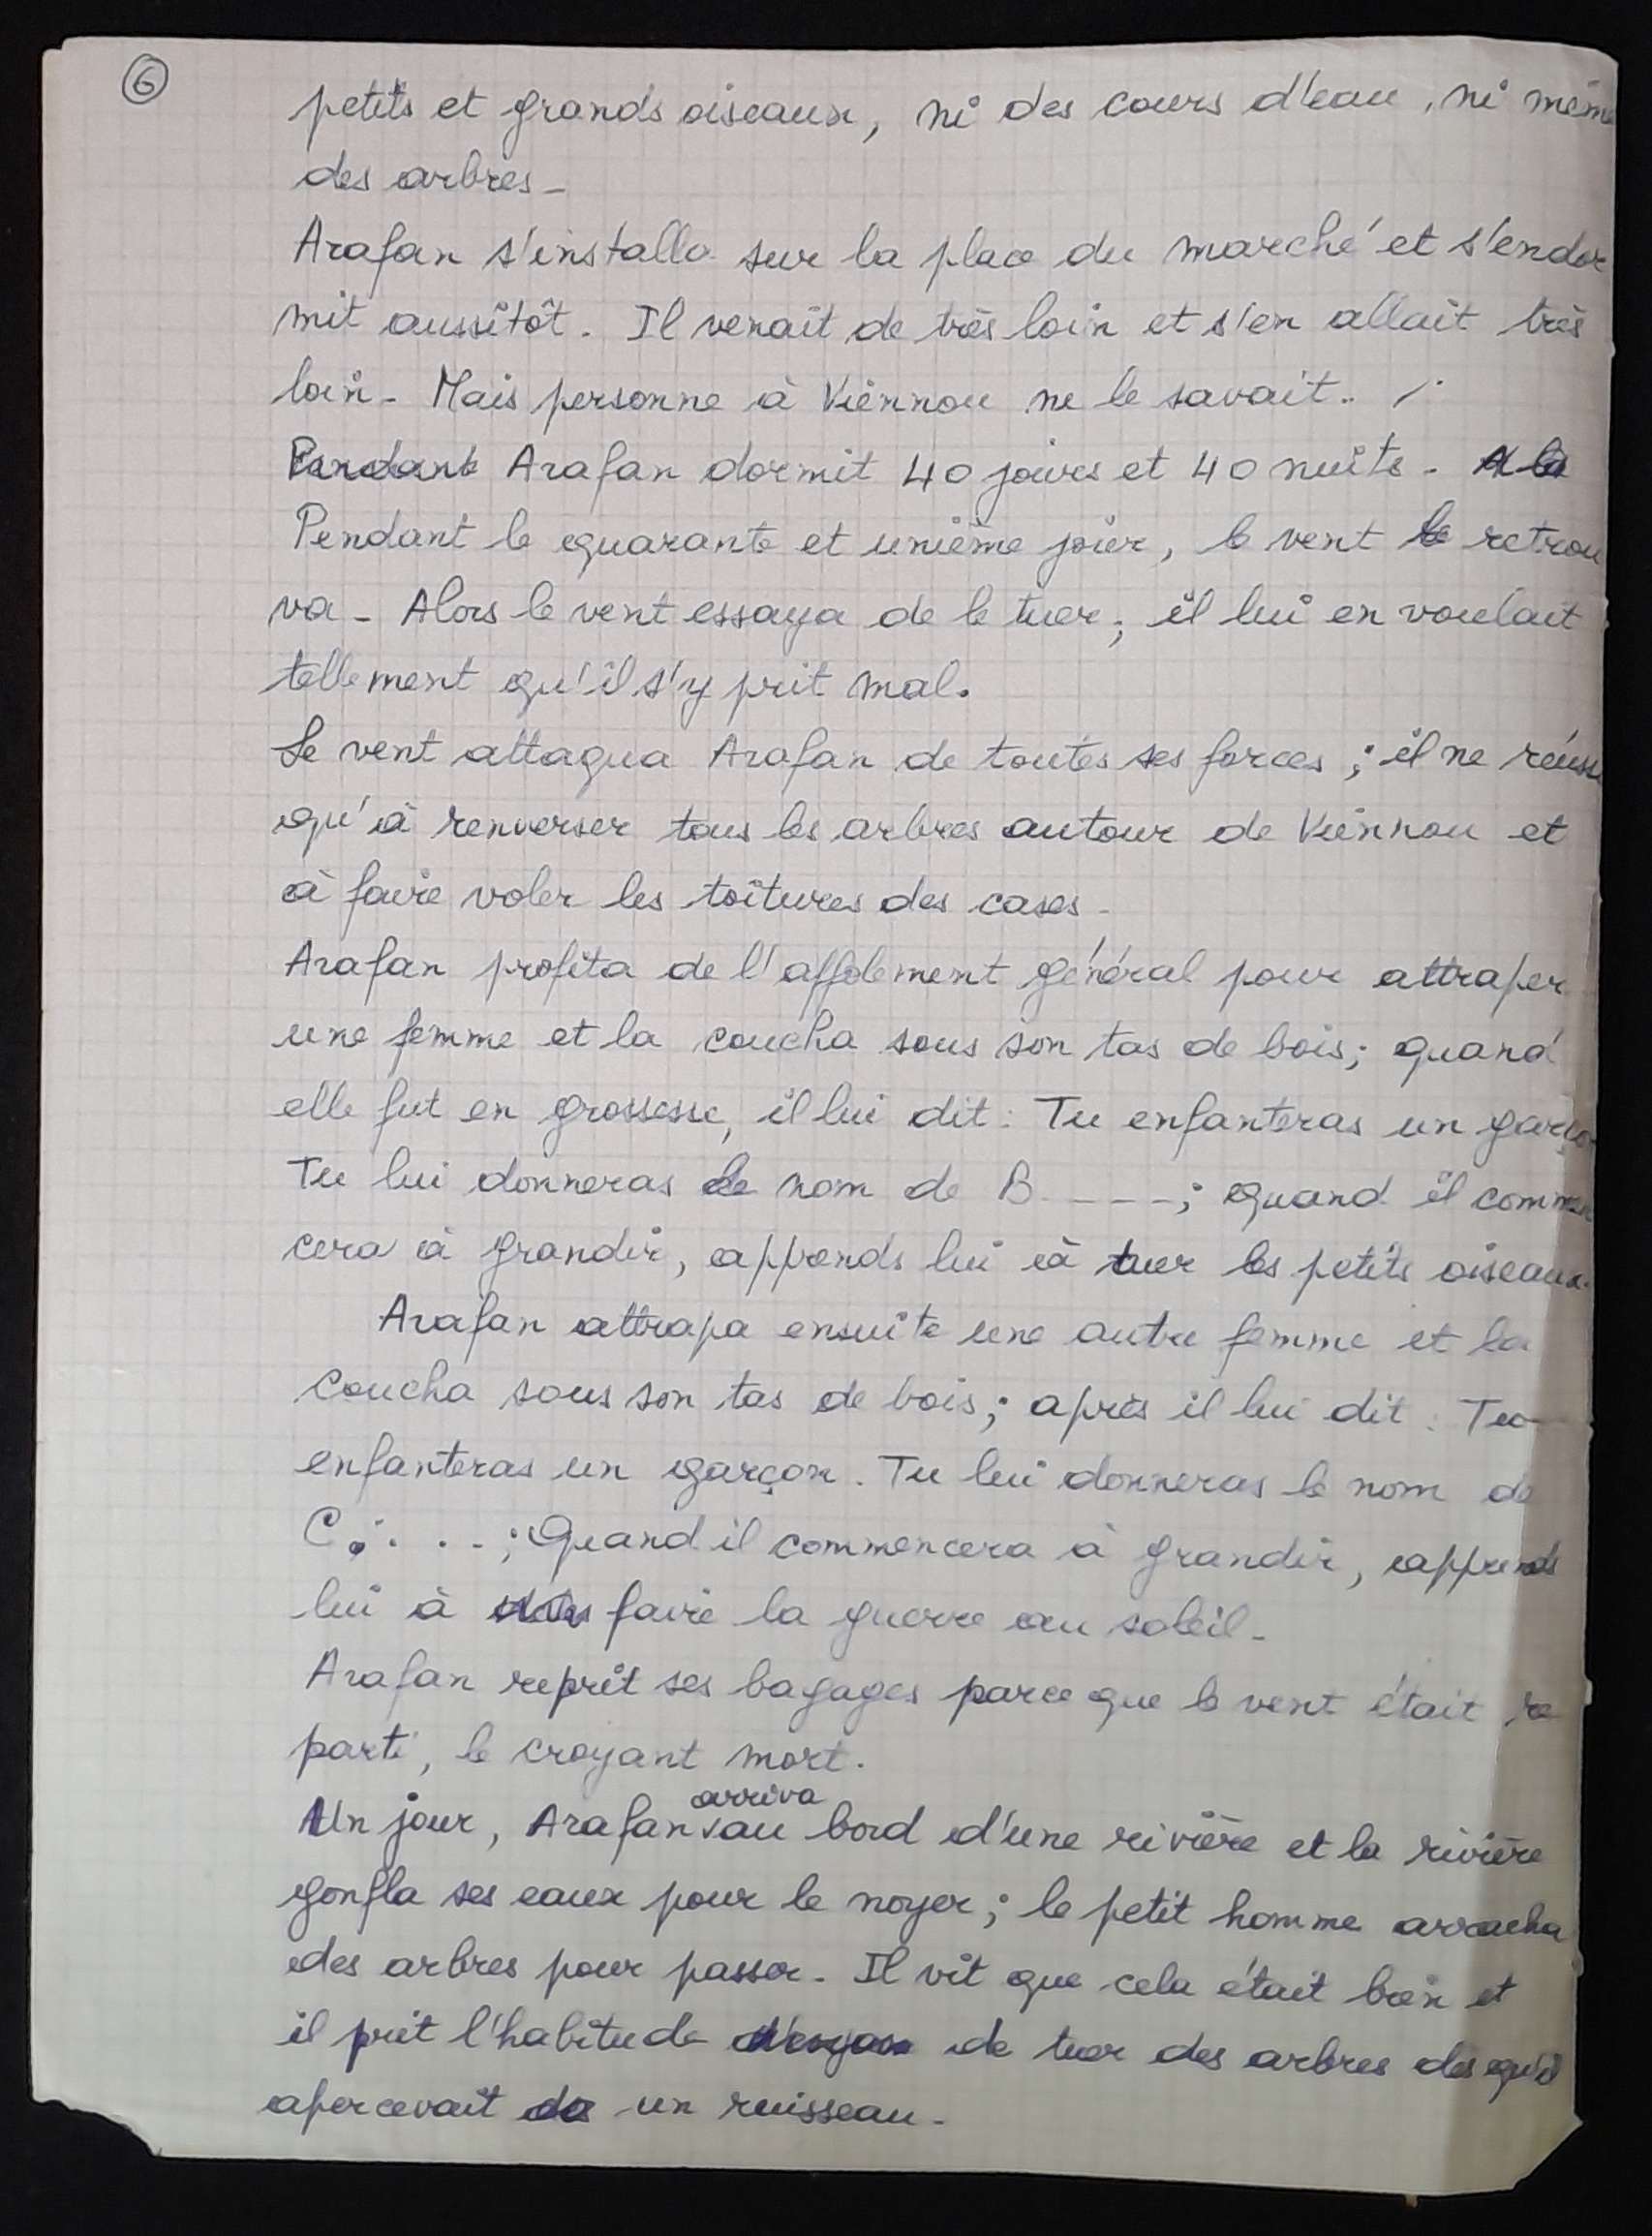 6
petits et grands oiseaux, ni des cours d'eau, ni même
des arbres -
Arafan s'installa sur la place du marché et s'endor
mit aussitôt. Il venait de très loin et s'en allait très
loin - Mais personne à Viennou ne le savait..
Pendant Arafan dormit 40 jours et 40 nuits - A la
Pendant le quarante et unième jour, le vent le retrou
va - Alors le vent essaya de le tuer; il lui en voulait
tellement qu'il s'y prit mal.
Le vent attaqua Arafan de toutes ses forces; il ne réuss
qu'à renverser tous les arbres autour de Viennou et
à faire voler les toitures des cases -
Arafan profita de l'affolement général pour attraper
une femme et la coucha sous son tas de bois; quand
elle fut en grossesse, il lui dit: Tu enfanteras un garço
Tu lui donneras le nom de B ----; quand il commen
cera à grandir, apprends lui à tuer les petits oiseaux.
Arafan attrapa ensuite une autre femme et la
coucha sous son tas de bois; après il lui dit: Tu
enfanteras un garçon. Tu lui donneras le nom de
C....; Quand il commencera à grandir, apprends
lui à faire la guerre au soleil -
Arafan reprit ses bagages parce que le vent était re
parti, le croyant mort.
Un jour, Arafan arriva au bord d'une rivière et la rivière
gonfla ses eaux pour le noyer; le petit homme arracha
des arbres pour passer - Il vit que cela était bon et
il prit l'habitude de tuer des arbres dès qu'il
apercevait un ruisseau -